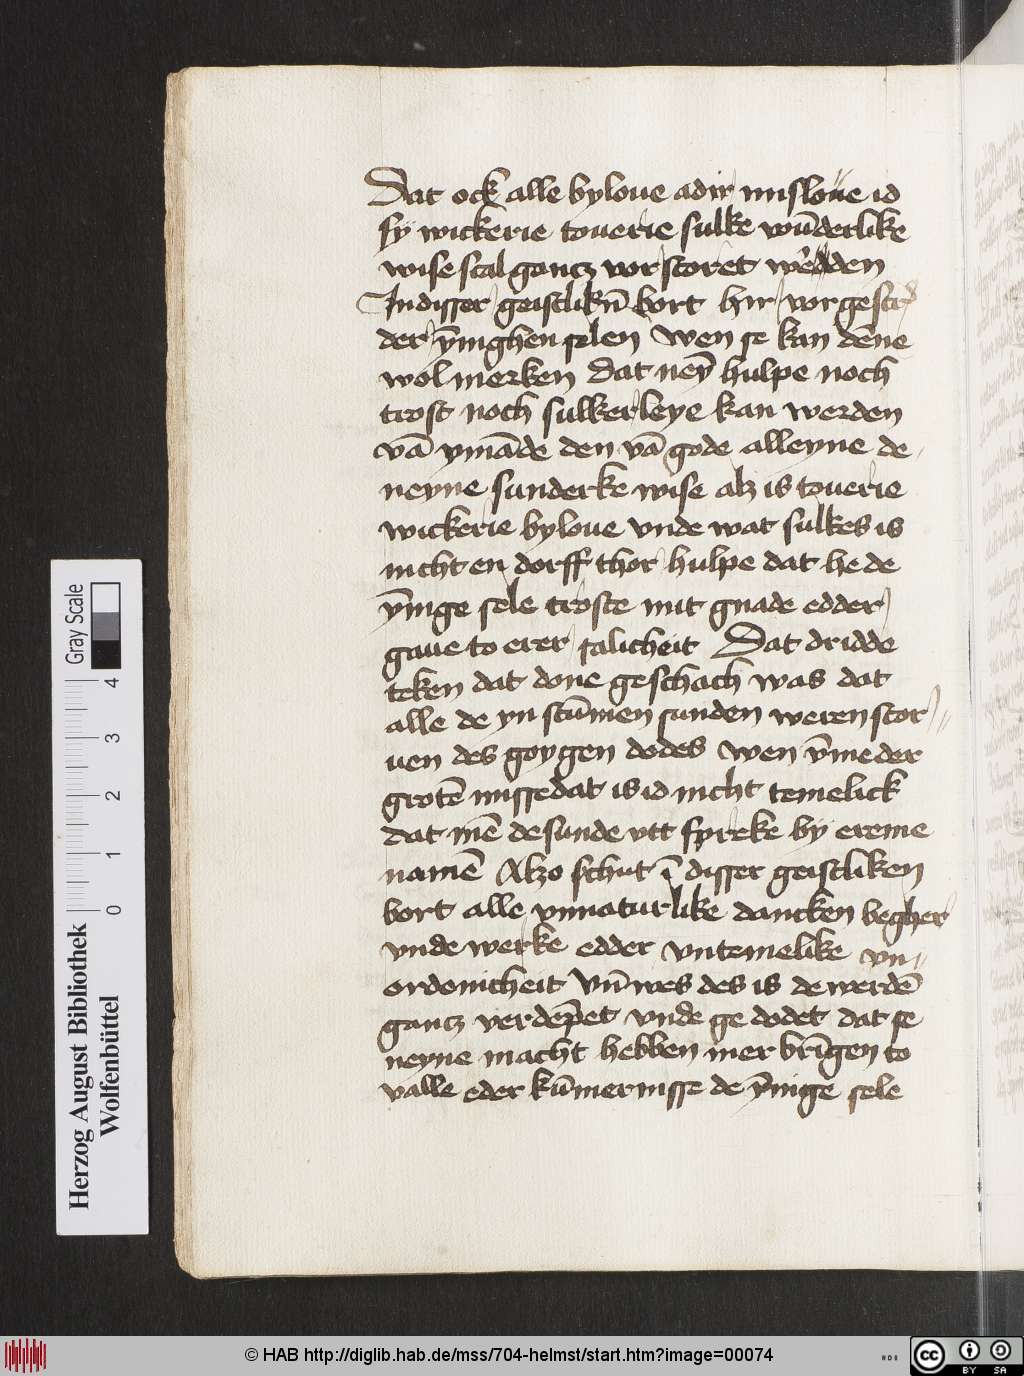 Dat ock alle byloue adir misloue id
sy wickerie touerie sulke wūderlike
wise scal gancz vorstoret werdden
In disser geistlikn̄ bort hir vorgescr
der ȳnighen selen Wen se kan dēne
wol merken dat neȳ hulpe noch
trost noch sulkerleye kan werden
vā ymāde den vā gode alleyne de
neyne sunderke wise alz is touerie
wickerie byloue vnde wat sulkes is
nicht en dorff thor hulpe dat he de
ȳnige sele troste mit gnade edder
gaue to erer salicheit Dat dridde
teken dat done geschach was dat
alle de yn stūmen sunden weren stor
uen des goygen dodes wen ȳme der
grotē missedat is id nicht temelick
dat mē de sunde vtt spreke by ereme
namē Alzo schut ī disser geistliken
bort alle vnnaturlike dancken begher
vnde werke edder vntemelike vn-
ordonicheit Vn̄ wes des is de werdē
gancz verdēpet vnde ge dodet dat se
neyne macht hebben mer brīgen to
valle eder kūmernisse de ȳnige sele
Herzog August Bibliothek
Wolfenbüttel
0 1 2 3 4
Gray Scale
© HAB http://diglib.hab.de/mss/704-helmst/start.htm?image=00074
HAB
cc BY SA